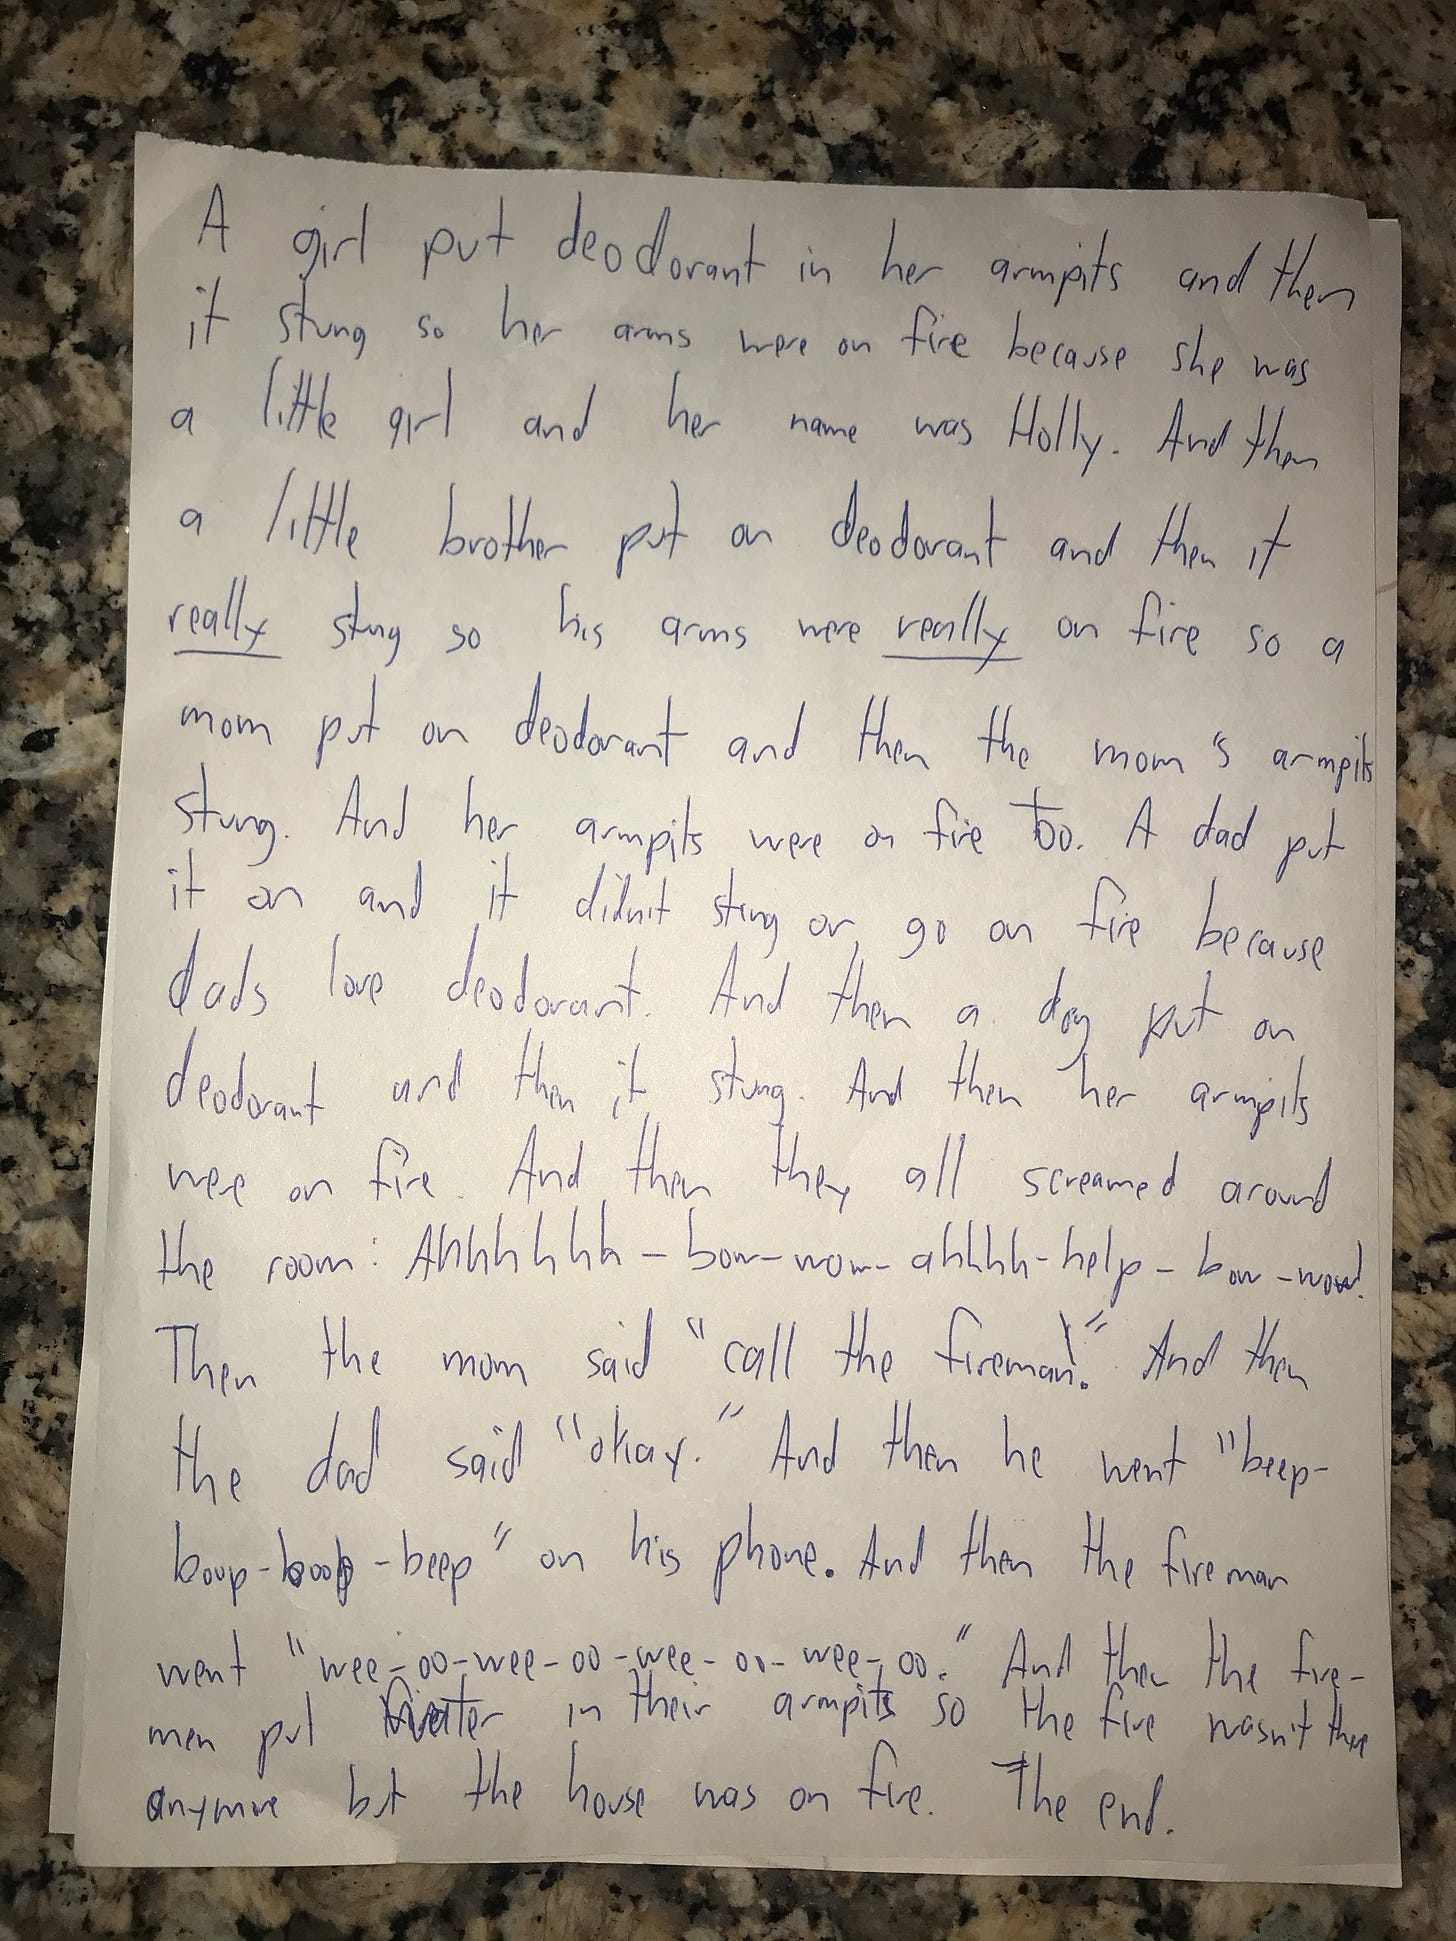 A girl put deodorant in her armpits and then
it stung so her arms were on fire because she was
a little girl and her name was Holly. And then
a little brother put on deodorant and then it
really stung so his arms were really on fire so a
mom put on deodorant and then the mom's armpits
stung. And her armpits were on fire too. A dad put
it on and it didn't sting or go on fire because
dads love deodorant. And then a dog put on
deodorant and then it stung. And then her armpits
were on fire. And then they all screamed around
the room: Ahhhhhh-bow-wow-ahhhh-help-bow-wow!
Then the mom said "call the fireman!" And then
the dad said "okay." And then he went "beep-
boop-boop-beep" on his phone. And then the fireman
went "wee-oo-wee-oo-wee-oo-wee-oo." And then the fire-
men put water in their armpits so the fire wasn't there
anymore but the house was on fire. The end.